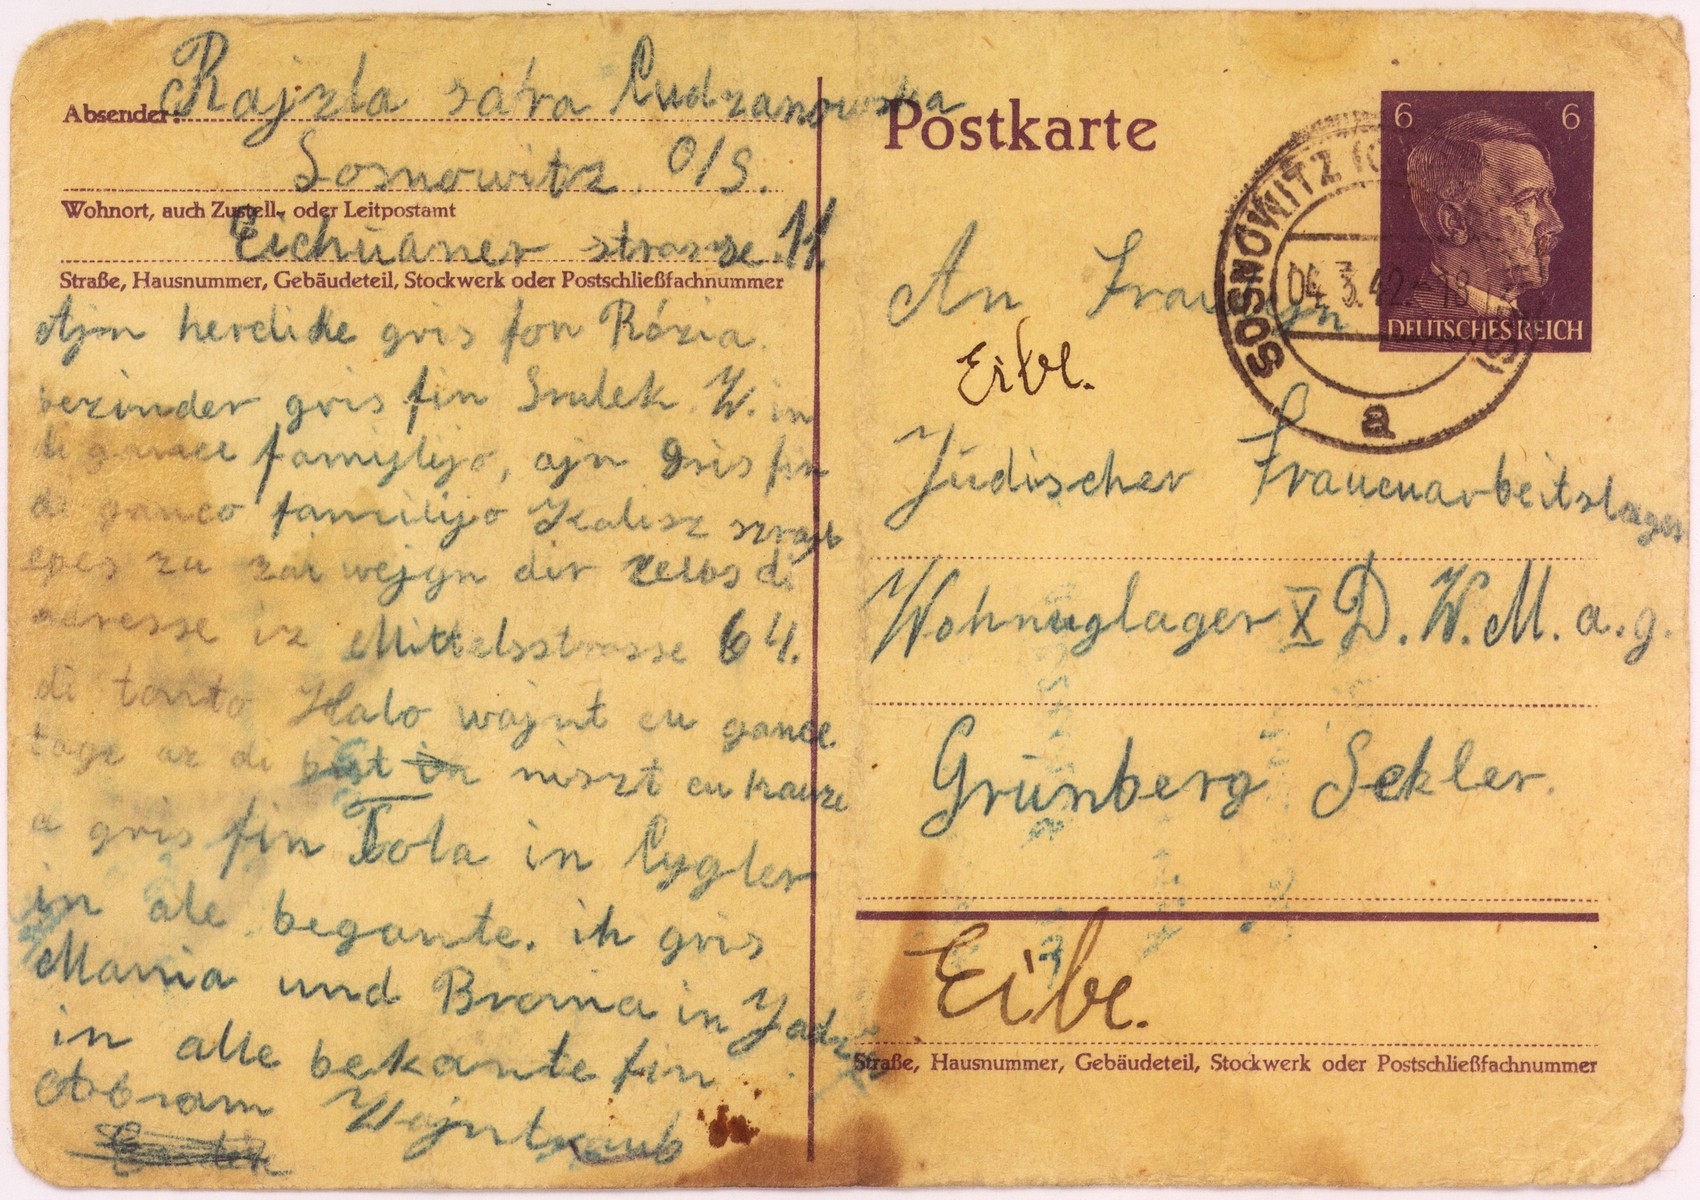 Absender: Rajzla sara Cudzanowska
Sosnowitz O/S.
Wohnort, auch Zustell- oder Leitpostamt
strasse 11.
Straße, Hausnummer, Gebäudeteil, Stockwerk oder Postschließfachnummer
Ajn herclike gris fon Rózia.
bezinder gris fin Srulek W. in
di gance familijo, ajn gris fin
di ganco familijo Kalisz szrajb
epes zu zai wejgn dir zelbs di
adresse iz Mittelsstrasse 64.
di tanto Halo wajnt cu gance
tage az di niszt cu hauze
a gris fin Tola in Cygler
in ale begante. ih gris
Mania und Bronia in
in alle bekante fin
Abram Wajntraub
Postkarte
6 6
DEUTSCHES REICH
SOSNOWITZ (
04.3.42.-18
a
An Fraulajn
Eibl.
Jüdischer Frauenarbeitslager
Wohnuglager X D. W. M. a. g.
Grünberg Sekler.
Eibl.
Straße, Hausnummer, Gebäudeteil, Stockwerk oder Postschließfachnummer